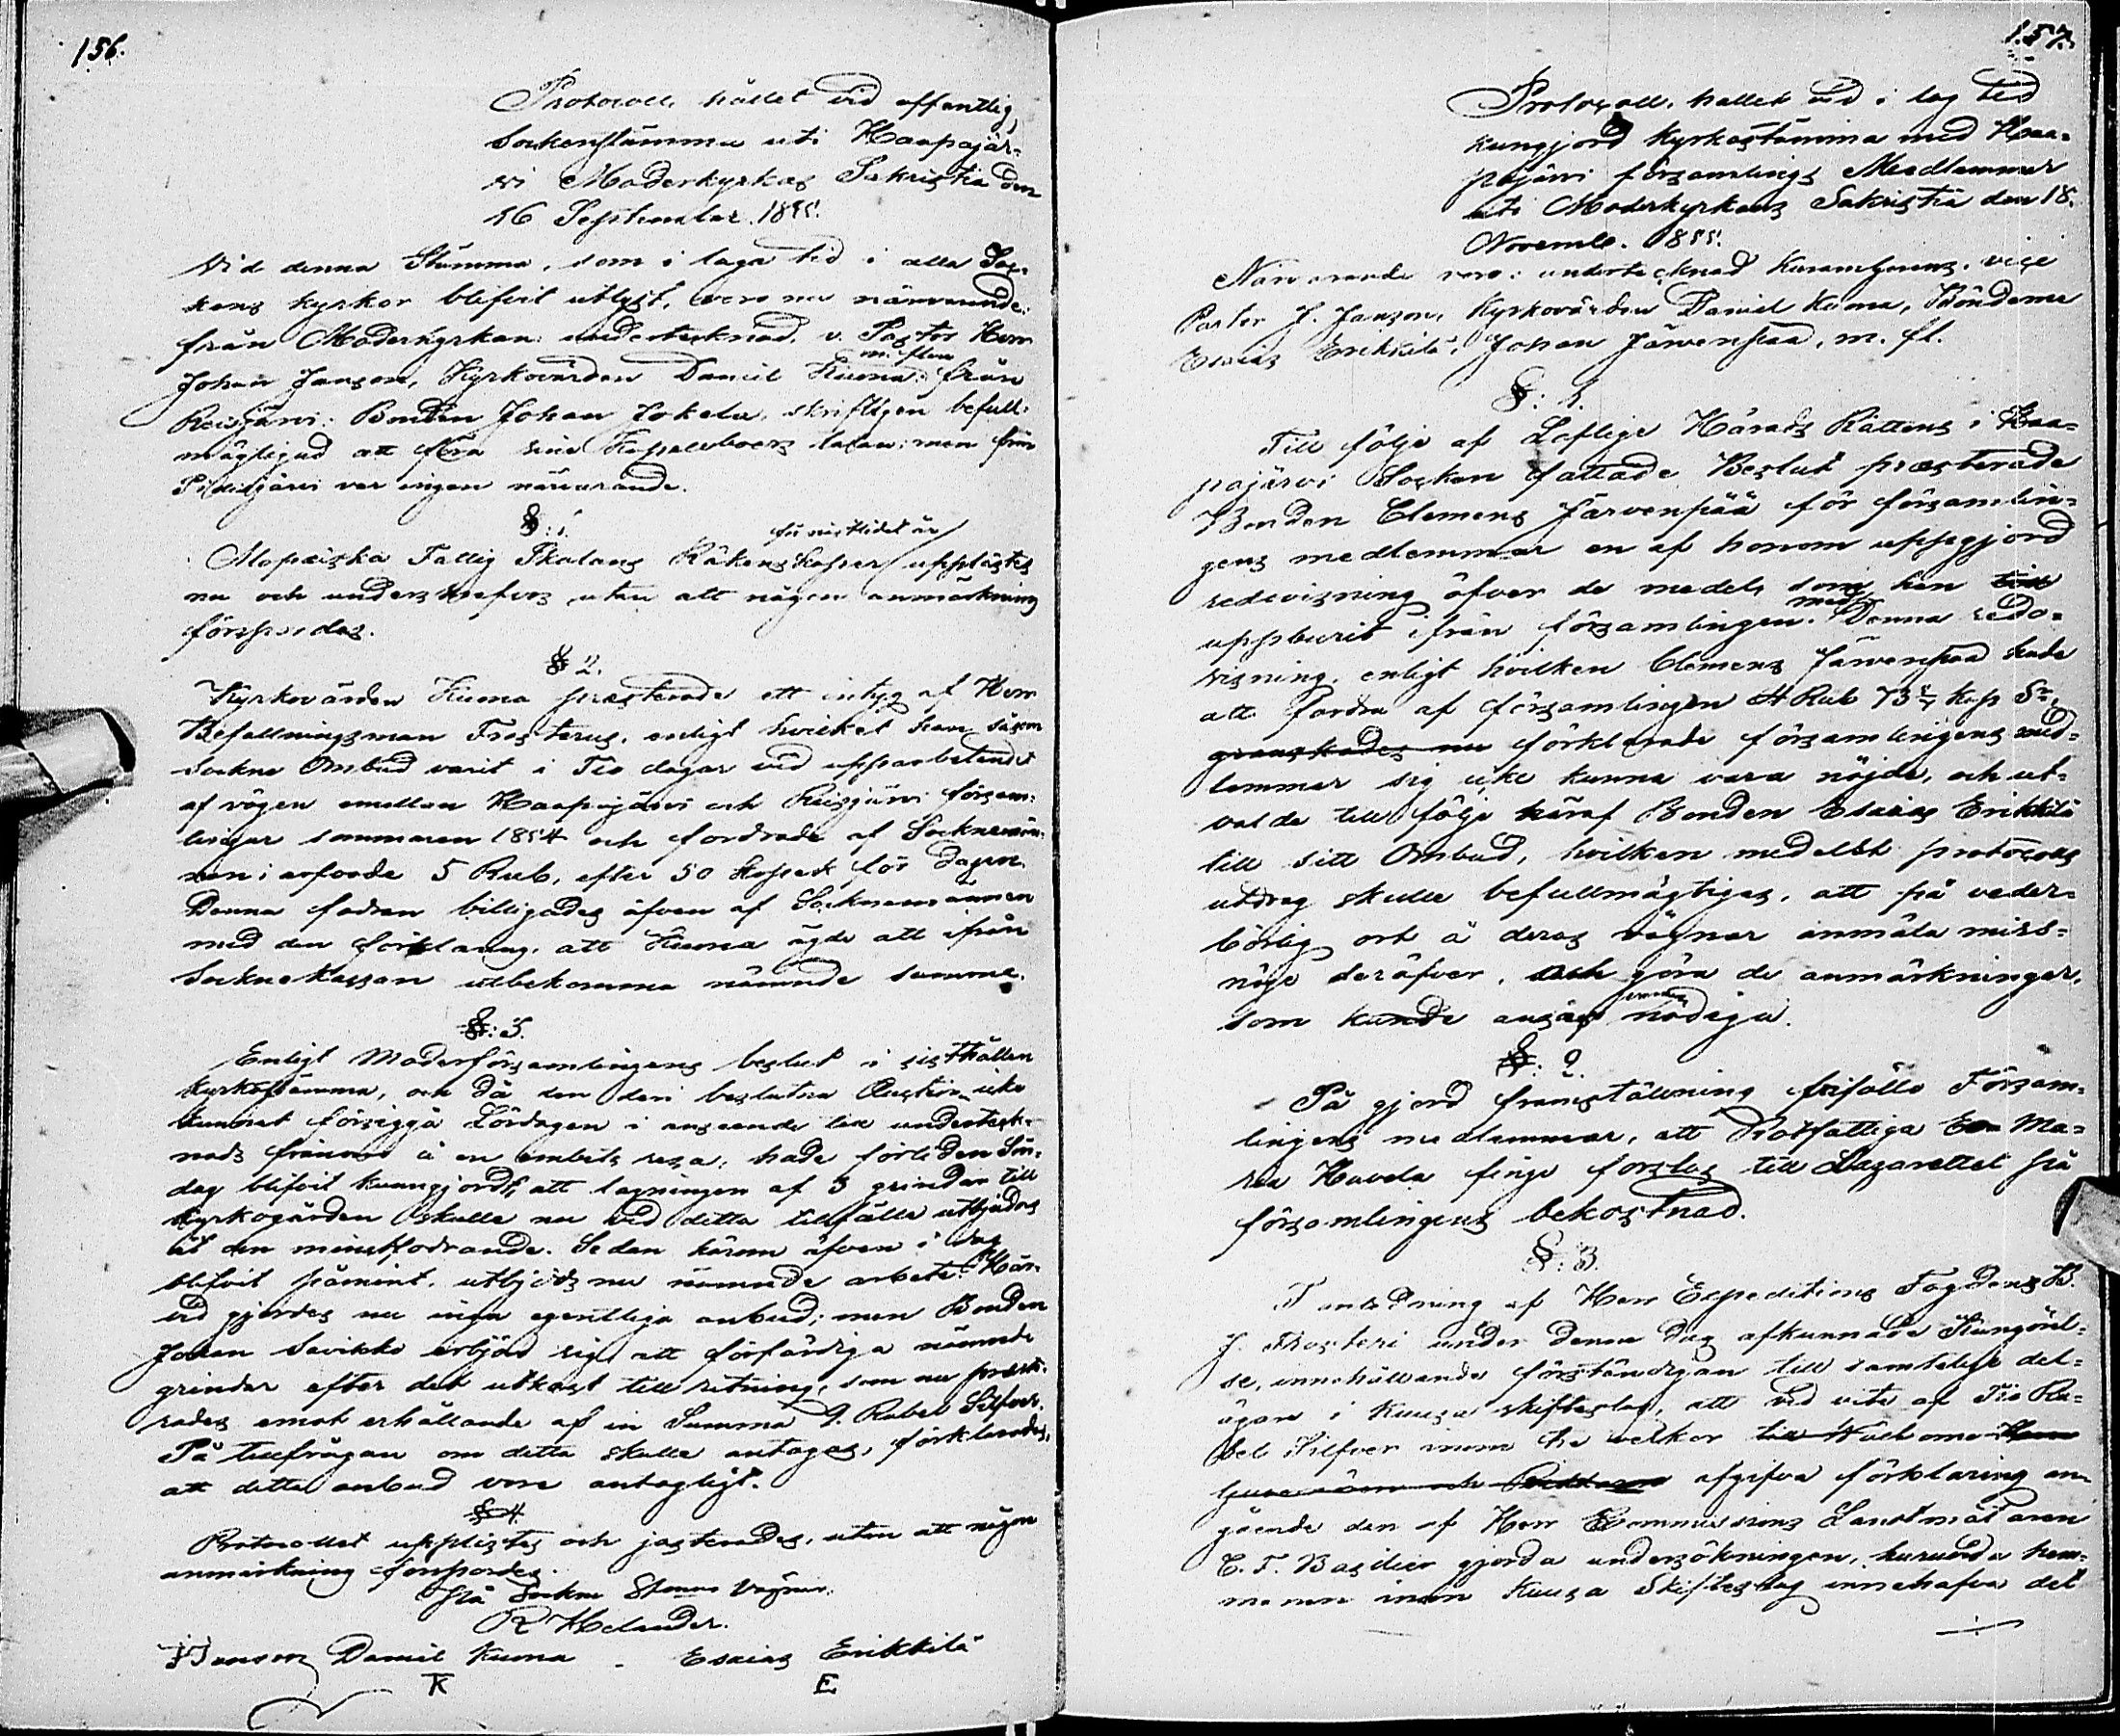 156.
Protocoll, hållet vid offentlig
Sockenstämma uti Haapajär-
vi Moderkyrkas Sakristia den
16 September 1855.
Vid denna Stämma, som i laga tid i alla Soc-
kens kyrkor blifvit utlyst, voro nu närvarande:
från Moderkyrkan: undertecknad, v. Pastor Herr
Johan Janson, Kyrkovärden Daniel Kuona m. flera från
Reisjärvi: Bonden Johan Jokela, skriftligen befull-
mägtigad att föra sine Kapellboers talan; men från
Pidisjärvi var ingen närvarande.
§: 1.
Alopæiska Fattig Skolans Räkenskaper för nästlidet år upplästes
nu och underskrefvos, utan att någon anmärkning
förspordes.
§ 2.
Kyrkovärden Kuona præsterade ett intyg af Herr
Befallningsman Frosterus, enligt hvilket han såsom
Sockne Ombud varit i Tio dagar vid upparbetandet
af vägen emellan Haapajärvi och Reisjärvi försam-
lingar sommaren 1854 och fordrade af Socknemän-
nen i arfvode 5 Rub, efter 50 Kopek för dagen.
Denna fodran billigades äfven af Socknemännen
med den förklaring, att Kuona ägde att ifrån
Socknekassan utbekomma nämnde summa.
§: 3.
Enligt Moderförsamlingens beslut i sisthållen
Kyrkostämma, och då den deri beslutna Auction icke
kunnat försiggå Lördagen i anseende till underteck-
nads frånvaro å en embets resa, hade förliden Sön-
dag blifvit kunngjordt, att lagningen af 3 grindar till
kyrkogården skulle nu vid detta tillfälle utbjudas
åt den minstfodrande. Sedan härom äfven i dag
blifvit påmint, utbjöds nu nämnde arbete. Här-
vid gjordes nu inga egentliga anbud; men Bonden
Johan Savikko erbjöd sig att förfärdiga nämnde
grindar efter det utkast till ritning, som nu præste-
rades emot erhållande af in Summa 9 Rubel Silfver.
På tillfrågan om detta skulle antagas, förklarades,
att detta anbud vore antagligt.
§ 4
Protocollet upplästes och justerades, utan att någon
anmärkning förspordes.
På Sockne Stämmans vägnar:
R Helander.
J Janson Daniel Kuona Esaias Erikkilä
K E
157.
Protocoll, hållet vid i lag tid
kungjord Kyrkostämma med Haa-
pajärvi församlings Medlemmar
uti Moderkyrkans Sakristia den 18.
Novemb. 1855.
Närvarande voro: undertecknad vice
Pastor J. Janson, Kyrkovärden Daniel Kuona, Bönderne
Esaias Erikkilä, Johan Järvenpää, m. fl.
§: 1.
Till följe af Loflige Härads Rättens i Haa-
pajärvi Socken fattade Beslut præsterade
Bonden Clemens Järvenpää för församlin-
gens medlemmar en af honom uppgjord
redovisning öfver de medel, som han
uppburit ifrån församlingen. Denna redo-
visning, enligt hvilken Clemens Järvenpää hade
att fordra af församlingen 4 Rub 73 Kop Sr.
granskades nu förklarade församlingens med-
lemmar sig icke kunna vara nöjde, och ut-
valde till följe häraf Bonden Esaias Erikkilä
till sitt Ombud, hvilken medelst protocolls
utdrag skulle befullmägtigas, att på veder-
börlig ort å deras vägnar anmäla miss-
nöje deröfver, och göra de anmärkningar,
som kunde anses nödiga.
§: 2.
På gjord framställning biföllo Försam-
lingens medlemmar, att Rotfattiga Ma-
ria Havela finge forslas till Lazarettet på
församlingens bekostnad.
§: 3.
I anledning af Herr Expeditions Fogdens B.
J. Frosteri under denna dag afkunnade Kungörel-
se, innehållande förständigan till samtelige del-
ägare i Kuusa skifteslag, att vid vite af Tio Ru-
bel Silfver inom tre veckor
afgifva förklaring an-
gående den af Herr Commissions Landtmätaren
C. F. Basilier gjorda undersökningen, huruvida hem-
manen inom Kuusa Skifteslag innehafva det